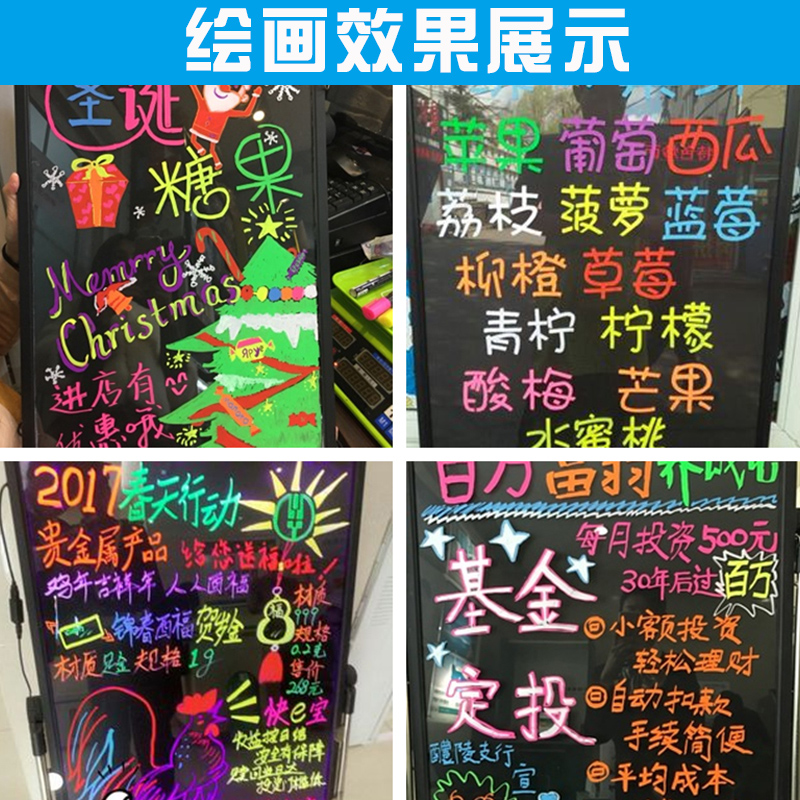 绘画效果展示
圣诞
糖果
Memrry
Christmas
进店有
优惠哦
苹果 葡萄 西瓜
荔枝 菠萝 蓝莓
柳橙 草莓
青柠 柠檬
酸梅 芒果
水蜜桃
2017春天行动
贵金属产品 给您送福啦!
鸡年吉祥年 人人面福
锦春酉福 贺岁金
材质足金 规格1g
福
材质
999
规格
0.2克
售价
268元
快e宝
收益按日结
安全有保障
百万富翁养成计
每月投资500元
30年后过百万
基金
定投
小额投资
轻松理财
自动扣款
手续简便
平均成本
醴陵支行
宣